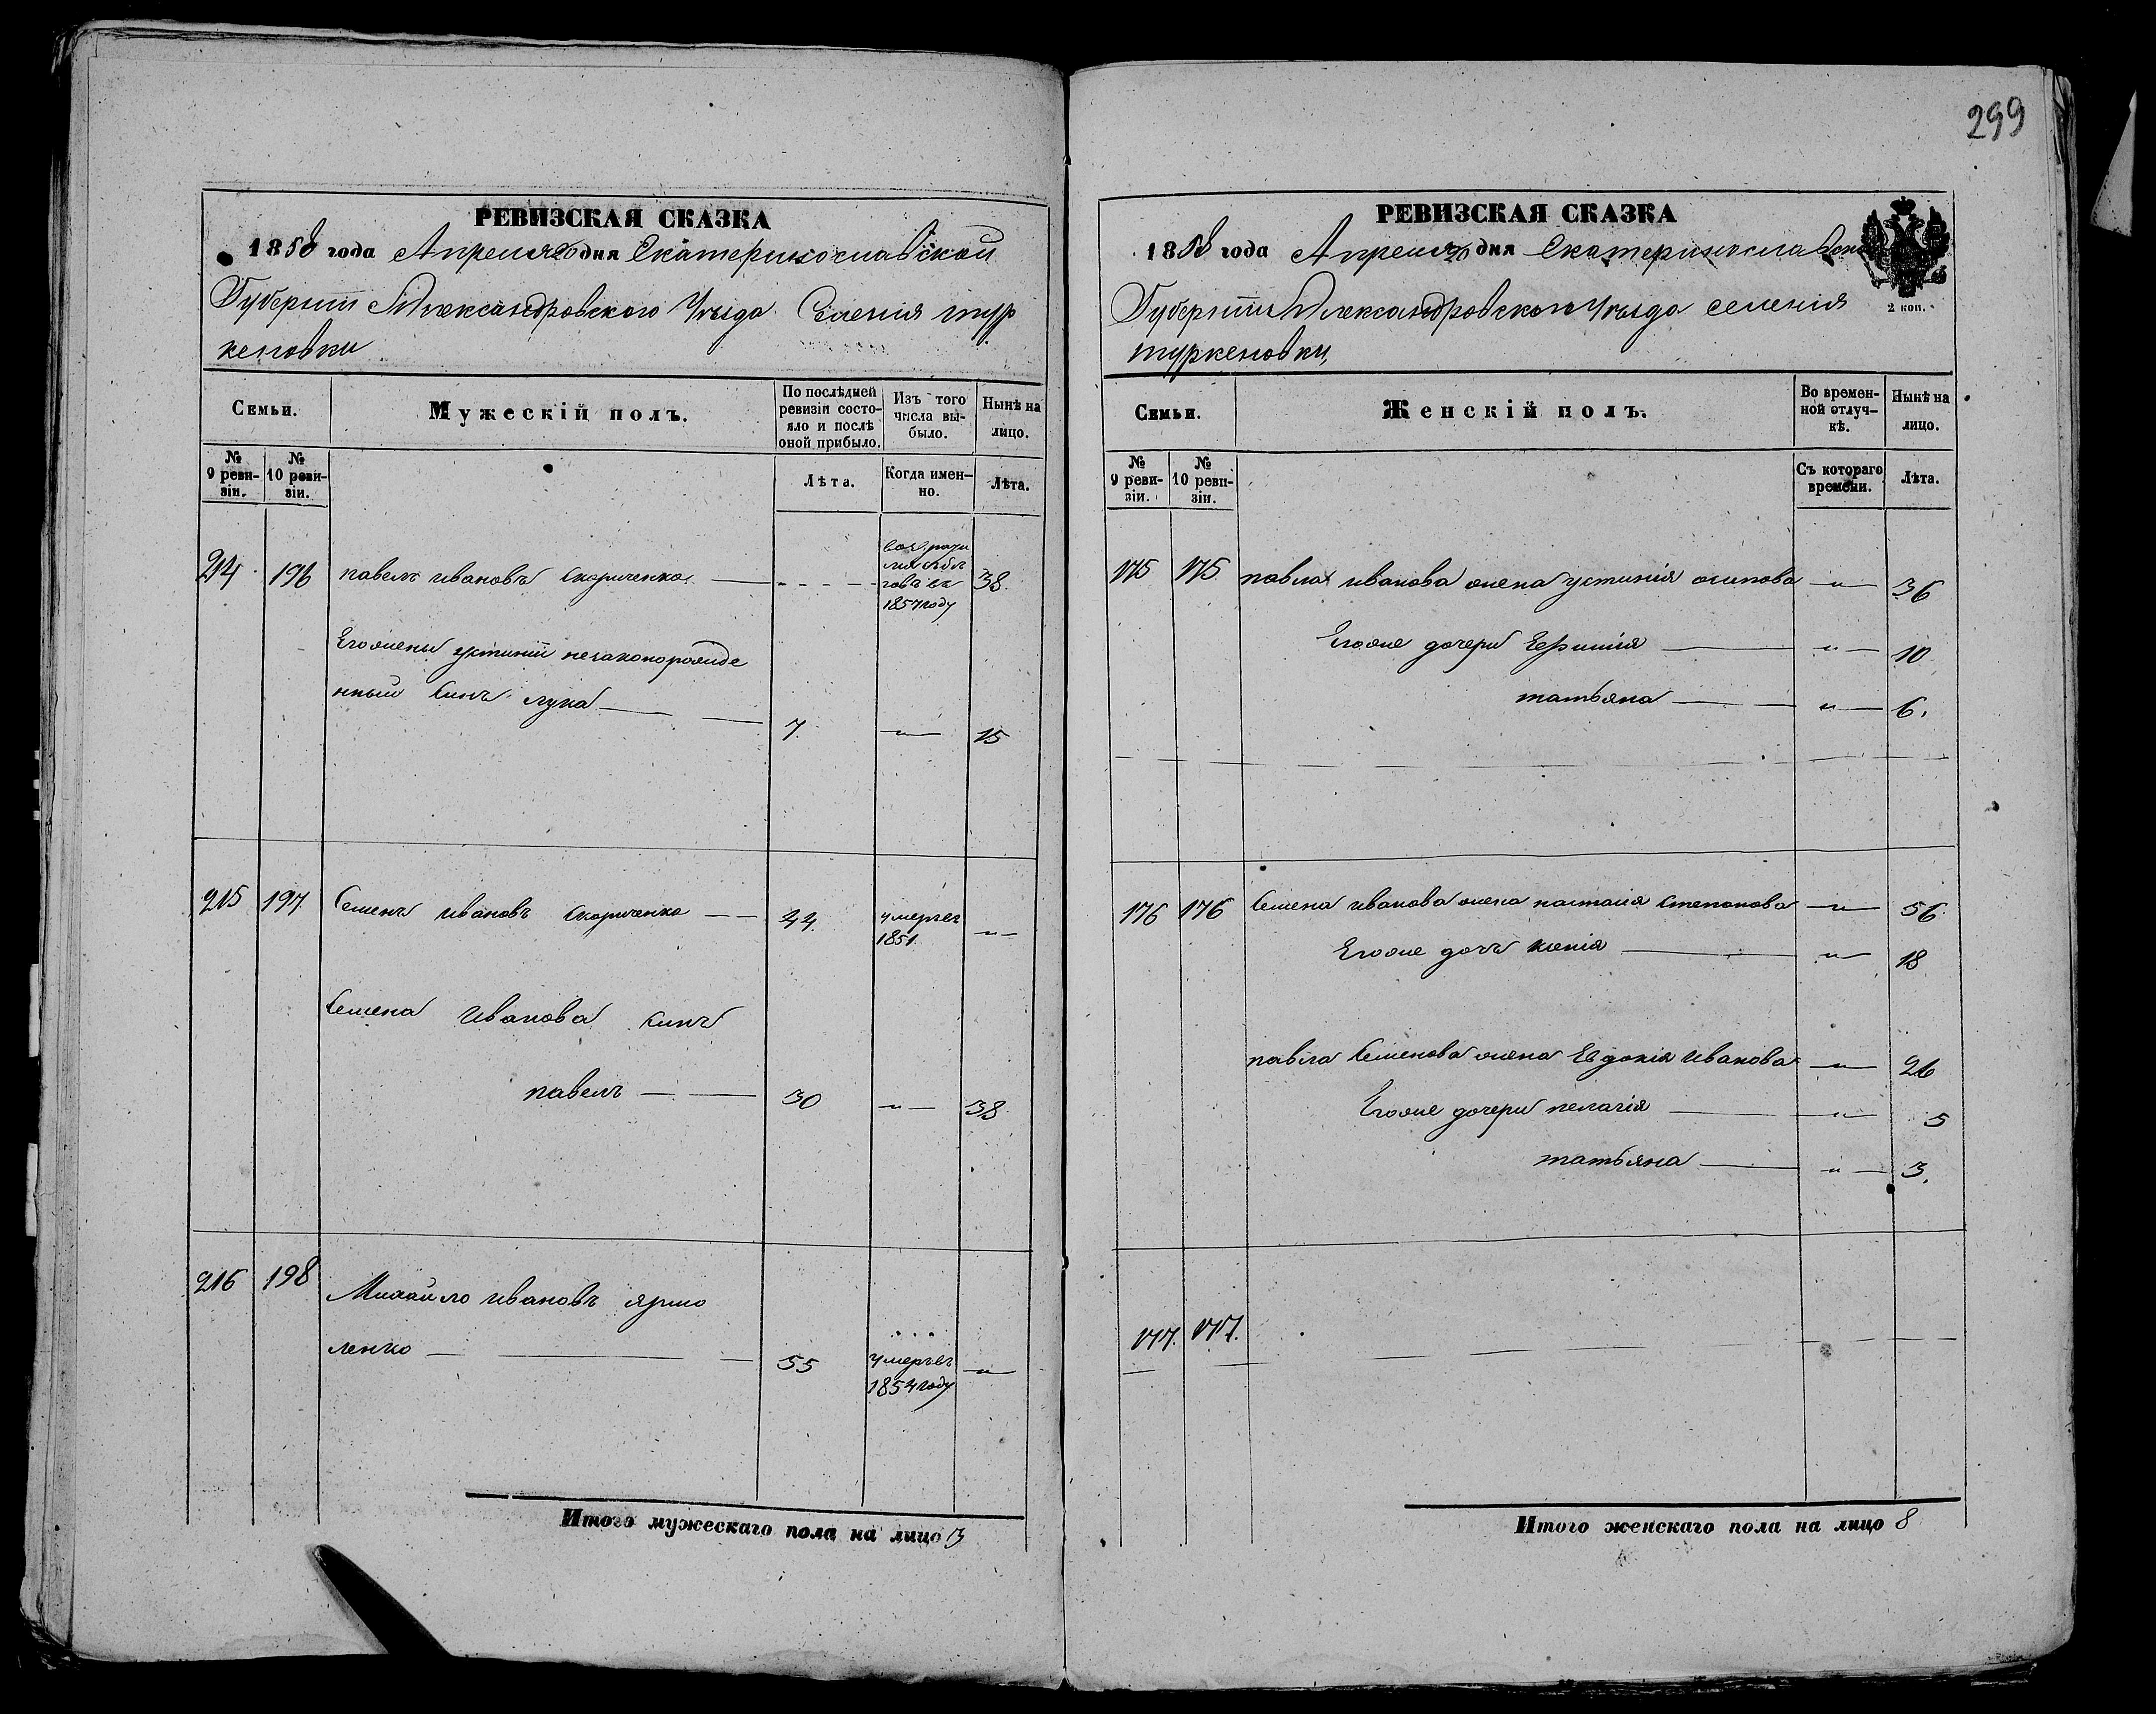 299
РЕВИЗСКАЯ СКАЗКА
1858 года Апреля 20 дня Екатеринославской
Губернии Александровского Уезда Селенія тур
кеновки
Семьи.
Мужескій полъ.
По послѣдней ревизіи состояло и послѣ оной прибыло.
Изъ того числа выбыло.
Нынѣ на лицо.
№ 9 ревизіи.
№ 10 ревизіи.
Лѣта.
Когда именно.
Лѣта.
214 196 павелъ ивановъ Скориченко 38
1857 году
Его жены устиніи незаконорожде
нный Синъ лука 7. 15
215 197 Семенъ ивановъ Скориченко 44. умеръ въ 1851. "
Семена Иванова Синъ
павелъ 30 " 38
216 198 Михайло ивановъ ярмо
ленко 55 умеръ въ 1854 году "
Итого мужескаго пола на лицо 3
РЕВИЗСКАЯ СКАЗКА
1858 года Апреля 20 дня Екатеринославской
2 коп.
Губернии Александровского Уезда селенія
туркеновки
Семьи.
Женскій полъ.
Во временной отлучкѣ.
Нынѣ на лицо.
№ 9 ревизіи.
№ 10 ревизіи.
Съ котораго времени.
Лѣта.
175 175 павла иванова жена устинія осипова " 36
Егоже дочери Ефимія " 10
татьяна " 6.
176 176 Семена иванова жена настасія Степонова " 56
Егоже дочъ ксенія " 18
павла Семенова жена Евдокія иванова " 26
Егоже дочери пелагія " 5
татьяна " 3.
177. 177.
Итого женскаго пола на лицо 8